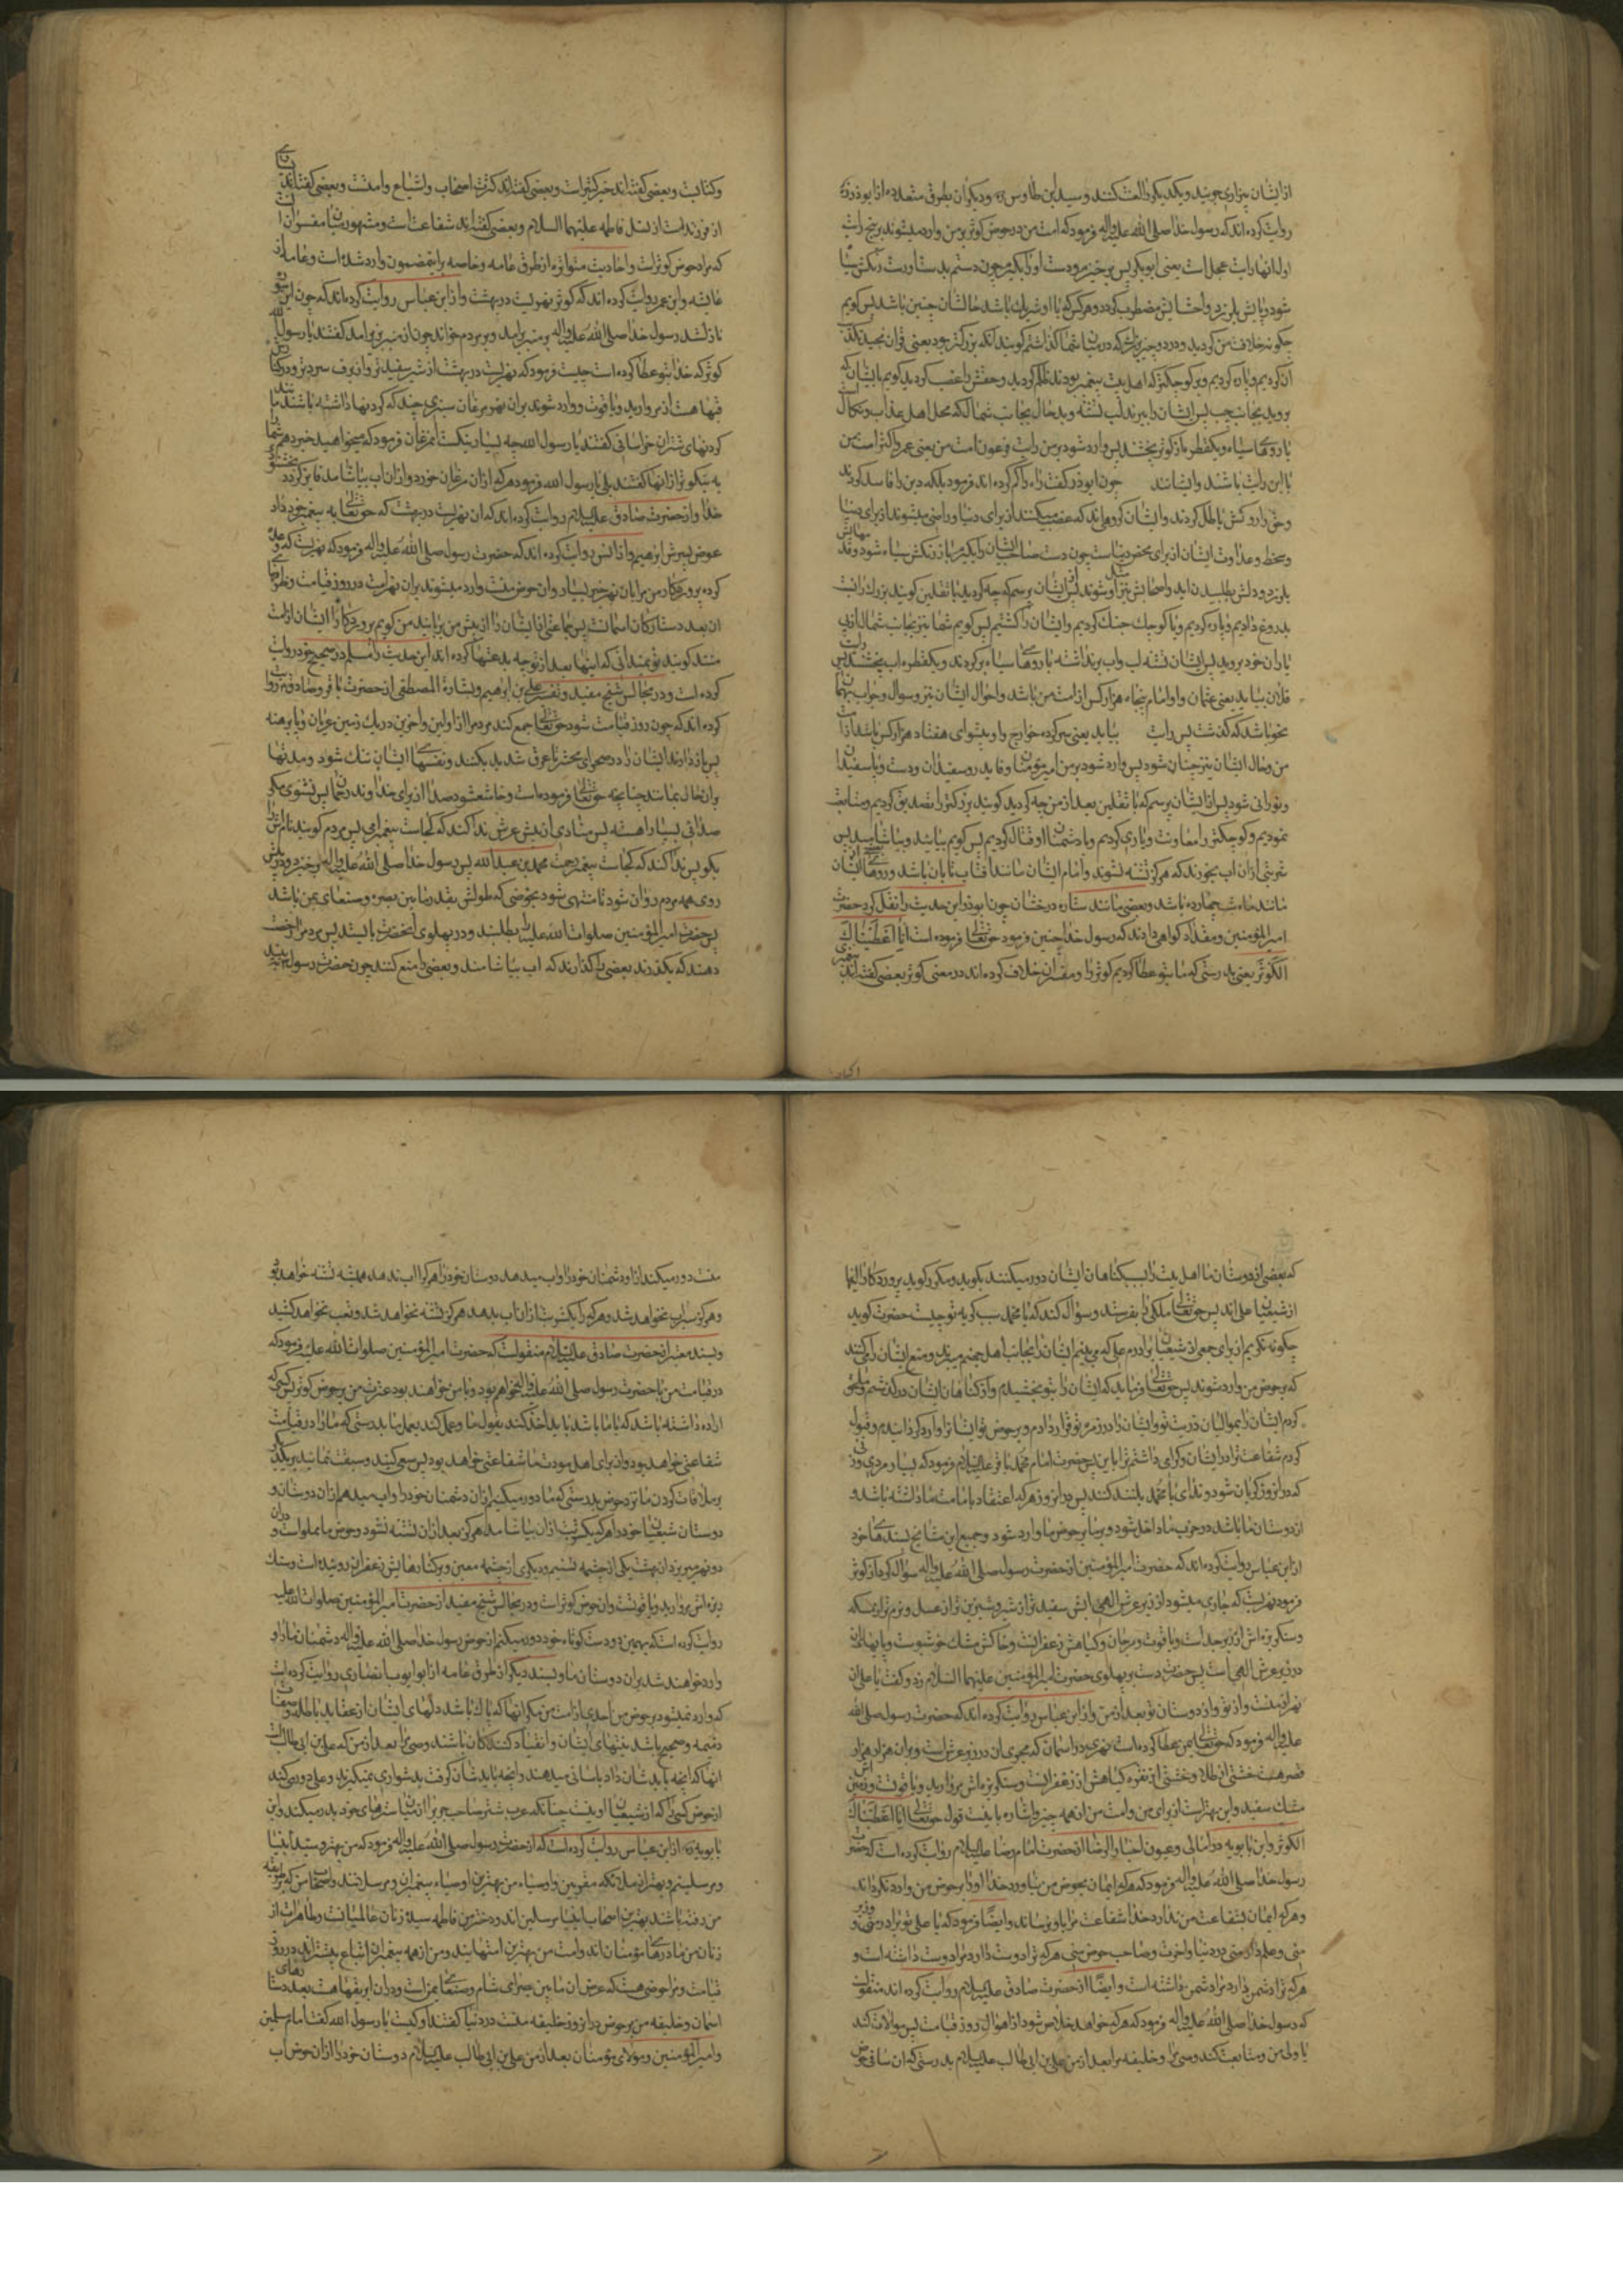 از ایشان بیزاری جویند و یکدیگر را لعنت کنند و سید ابن طاوس ره و دیکران بطرق متعدده از ابوذر ره
روایت کرده اند که رسول خدا صلی الله علیه واله فرمود که امت من در حوض کوثر بر من وارد میشوند بر پنج رایت
اول انها رایت عجل است یعنی ابوبکر پس برخیزم و دست او را بکیرم چون دستم بدستاو رسد رنکش سیاه
شود و پایش بلرزد و احشایش مضطرب کردد و هر کس که با او شریک باشد حالشان چنین باشد پس کویم
چکونه خلافت من کردید در دو چیز بزرک که در میان شما کذاشتم کویند انکه بزرکتر بود یعنی قران تکذیب
ان کردیم و پاره کردیم و بر کوچکتر که اهل بیت پیغمبر بودند ظلم کردیم و حقش را غصب کردیم کویم بایشان که
بروید بجانب چپ پس ایشان را ببرند لب تشنه و بدحال بجانب شمال که محل اهل عذاب و نکال است
با روهای سیاه و یکقطره از کوثر نچشند پس وارد شود بر من رایت فرعون امت من یعنی عمر و اکثر امت من
با این رایت باشند و ایشانند چون ابوذر کفت راه را کم کرده اند فرمود بلکه دین را فاسد کردند
وحق را روکش باطل کردند و ایشان کروهی اند که غضب میکنند از برای دنیا و راضی میشوند از برای دنیا
وسخط وعداوت ایشان از برای محض دنیاست چون دست صاحب ایشان را بکیرم باز رنکش سیاه شود و قدمهایش
بلرزد و دلش بطپیدن اید و اصحابش مثل او شوند از ایشان پرسم که چه کردید با ثقلین کویند بزرک را نسبت
بدروغ دادیم و پاره کردیم و با کوچک جنک کردیم و ایشان را کشتیم پس کویم شما نیز بجانب شمال از پی
یاران خود بروید پس ایشان تشنه لب واب برنداشته با روهای سیاه برکردند و یکقطره اب نچشند پس رایت
فلان بیاید یعنی عثمان و او امام پنجاه هزار کس از امت من باشد و احوال ایشان نیز و سوال و جواب بهمان
نحو باشد که کذشت پس رایت بیاید یعنی سرکرده خوارج و او پیشوای هفتاد هزار کس باشد از امت
من و حال ایشان نیز چنان شود پس وارد شود بر من امیر مؤمنان و قاید روسفیدان و دست و پا سفیدان
و نورانی شود پس از ایشان پرسم که با ثقلین بعد از من چه کردید کویند بزرکتر را تصدیق کردیم و متابعت
نمودیم و کوچکتر را معاونت ویاری کردیم و با دشمنان او قتال کردیم پس کویم بیایید و بیاشامید پس
شربتی ازان اب بخورند که هرکز تشنه نشوند و امام ایشان مانند افتاب تابان باشد و روهای ایشان
مانند ماه شب چهارده باشد و بعضی مانند ستاره درخشان چون ابوذر این حدیث را نقل کرد حضرت
امیر المؤمنین و مقداد کواهی دادند که رسول خدا چنین فرمود حق تعالی فرموده است انا اعطیناک
الکوثر یعنی بدرستی که ما بتو عطا کردیم کوثر را و مفسران خلاف کرده اند در معنی کوثر بعضی کفته اند
وکتابست و بعضی کفته اند خیر کثیر است و بعضی کفته اند کثرت اصحاب واشیاع وامتست و بعضی کفته اند
از فرزندانست از نسل فاطمه علیها السلام و بعضی کفته اند شفاعت است و مشهور میان مفسران
که مراد حوض کوثر است و احادیث متواتره از طرق عامه و خاصه براین مضمون وارد شده است و عامه از
عایشه وابن عمر روایت کرده اند که کوثر نهریست در بهشت واز ابن عباس روایت کرده اند که چون این سوره
نازل شد رسول خدا صلی الله علیه واله بر منبر برامد و بر مردم خواند چون از منبر بزیر امد کفتند یا رسول الله
کوثر که خدا بتو عطا کرده است چیست فرمود که نهریست در بهشت از شیر سفیدتر و از برف سردتر و در کنارش
قبها هست از مروارید و یاقوت و وارد شوند بران نهر مرغان سبزی چند که کردنها داشته باشند مانند
کردنهای شتران خراسانی کفتند یا رسول الله چه بسیار نیکست ان مرغان فرمود که میخواهید خبر دهم شما را
به نیکوتر از انها کفتند بلی یا رسول الله فرمود هر که ازان مرغان خورد و ازان اب بیاشامد فایز کردد بخشنودی
خدا واز حضرت صادق علیه السلام روایت کرده اند که ان نهریست در بهشت که حق تعالی به پیغمبر خود داد
عوض پسرش ابرهیم و از انس روایت کرده اند که حضرت رسول صلی الله علیه واله فرمود که نهریست که وعده
کرده پروردکار من مرا بان نهر خیر بسیار و ان حوض منست وارد میشوند بران نهر امت در روز قیامت و ظرفهای
ان بعدد ستارکان اسمانست پس جماعتی از ایشان را از پیش من بربایند من کویم پروردکارا ایشان از امت
منند کویند تو نمیدانی که اینها بعد از تو چه بدعتها کرده اند این حدیث را مسلم در صحیح خود روایت
کرده است و در مجالس شیخ مفید و تفسیر علی بن ابرهیم و بشارة المصطفی از حضرت باقر و صادق ع روایت
کرده اند که چون روز قیامت شود حق تعالی جمع کند مردم را از اولین و اخرین در یک زمین عریان و پا برهنه
پس باز دارند ایشان را در صحرای محشر تا عرق شدید بکنند و نفسهای ایشان تنک شود و مدتها
بران حال بمانند چنانچه حق تعالی فرموده است وخاشع شود صداها از برای خداوند رحمان پس نشنوی مکر
صدائی بسیار اهسته پس منادی از پیش عرش ندا کند که کجاست پیغمبر امی پس مردم کویند نامش را
بکو پس ندا کند که کجاست پیغمبر رحمت محمد بن عبدالله پس رسول خدا صلی الله علیه واله برخیزد و در پیش
روی همه مردم روان شود تا منتهی شود بحوضی که طولش بقدر مابین بصره و صنعای یمن باشد
پس حضرت امیر المؤمنین صلوات الله علیه را بطلبند و در پهلوی انحضرت بایستد پس مردم را رخصت
دهند که بکذرند بعضی را کذارند که اب بیاشامند و بعضی را منع کنند چون حضرت رسول بیند
که بعضی از دوستان ما اهل بیت را بسبب کناهان ایشان دور میکنند بکرید و مکرر کوید پروردکارا اینها
از شیعیان علی اند پس حق تعالی ملکی را بفرستد و سؤال کند که یا محمد سبب کریه تو چیست حضرت کوید
چکونه نکریم از برای جمعی از شیعیان برادرم علی که می بینم ایشان را بجانب اهل جهنم میبرند و منع ایشان را میکنند
که بر حوض من وارد شوند پس حق تعالی فرماید که ایشان را بتو بخشیدم و از کناهان ایشان درکذشتم و ملحق
کردم ایشان را بموالیان ذریت تو و ایشان را در زمره تو قرار دادم و بر حوض تو ایشان را وارد کردانیدم و قبول
کردم شفاعت ترا در ایشان و کرامی داشتم ترا باین پس حضرت امام محمد باقر علیه السلام فرمود که بسیار مردی و زنی
که در انروز کریان شود و ندای یا محمد بلند کنند پس در انروز هر که اعتقاد بامامت ما داشته باشد و
از دوستان ما باشد در حزب ما داخل شود و با ما بر حوض ما وارد شود و جمیع این مشایخ بسندهای خود
از ابن عباس روایت کرده اند که حضرت امیر المؤمنین از حضرت رسول صلی الله علیه واله سؤال کرد از کوثر
فرمود نهریست که جاری میشود از زیر عرش الهی ابش سفیدتر از شیر و شیرین تر از عسل و نرم تر از مسکه
و سنکریزه اش از زبرجد است و یاقوت و مرجان و کیاهش زعفرانست و خاکش مشک خوشبوست و پایهاش
در زیر عرش الهی است پس حضرت دست بر پهلوی حضرت امیر المؤمنین علیهما السلام زد و کفت یا علی ان
نهر از منست و از تو و از دوستان تو بعد از من و از ابن عباس روایت کرده اند که حضرت رسول صلی الله
علیه واله فرمود که حق تعالی بمن عطا کرده است نهری در اسمان که مجرای ان در زیر عرش است و بران هزار هزار
قصر هست خشتی از طلا و خشتی از نقره کیاهش از زعفرانست و سنکریزه اش مروارید و یاقوت و زمینش
مشک سفید و این بهتر است از برای من و امت من از همه چیز و اشاره باینست قول حق تعالی انا اعطیناک
الکوثر و ابن بابویه در امالی و عیون اخبار الرضا از حضرت امام رضا علیه السلام روایت کرده است که حضرت
رسول خدا صلی الله علیه واله فرمود که هر که ایمان بحوض من نیاورد خدا او را بر حوض من وارد نکرداند
و هر که ایمان بشفاعت من ندارد خدا شفاعت مرا باو نرساند و ایضا فرمود که یا علی تو برادر منی و وزیر
منی و علمدار منی در دنیا و اخرت و صاحب حوض منی هر که ترا دوست دارد مرا دوست داشته است و
هر که ترا دشمن دارد مرا دشمن داشته است و ایضا از حضرت صادق علیه السلام روایت کرده اند منقولست
که رسول خدا صلی الله علیه واله فرمود که هر که خواهد خلاص شود از اهوال روز قیامت پس موالات کند
با ولی من و متابعت کند وصی مرا و خلیفه مرا بعد از من علی بن ابی طالب علیه السلام بدرستی که ان ساقی حوض
منست دور میکند ازان دشمنان خود را و اب میدهد دوستان خود را هر که را اب ندهد همیشه تشنه خواهد بود
و هرکز سیراب نخواهد شد و هر که را یکشربت ازان اب بدهد هرکز تشنه نخواهد شد و تعب نخواهد کشید
و بسند معتبر از حضرت صادق علیه السلام منقولست که حضرت امیر المؤمنین صلوات الله علیه فرمود که
در قیامت من با حضرت رسول صلی الله علیه واله خواهم بود و با من خواهند بود عترت من بر حوض کوثر پس کسی که
اراده داشته باشد که با ما باشد باید اخذ کند بقول ما و عمل کند بعمل ما بدرستی که ما را در قیامت
شفاعتی خواهد بود و از برای اهل مودت ما شفاعتی خواهد بود پس سعی کنید و سبقت نمائید بر یکدیکر
بر ملاقات کردن ما نزد حوض بدرستی که ما دور میکنیم ازان دشمنان خود را و اب میدهیم ازان دوستان و
دوستان شیعیان خود را هر که یکشربت ازان بیاشامد هرکز بعد ازان تشنه نشود و حوض ما مملو است و دران
دو نهر میریزد از بهشت یکی از چشمه تسنیم و دیکری از چشمه معین و بر کنارهایش زعفران روئیده است و سنک
ریزه اش مروارید و یاقوتست و ان حوض کوثر است و در مجالس شیخ مفید از حضرت امیر المؤمنین صلوات الله علیه
روایت کرده است که بهمین دو دست کوتاه خود دور میکنم از حوض رسول خدا صلی الله علیه واله دشمنان ما را و
وارد خواهند شد بران دوستان ما و بسند دیکر از طرق عامه از ابو ایوب انصاری روایت کرده است
که وارد نمیشود بر حوض من احدی از امت من مکر انها که پاک باشد دلهای ایشان از عقاید باطله و صفات
ذمیمه و صحیح باشد نیتهای ایشان و انقیاد کنندکان باشند وصی مرا بعد از من که علی بن ابی طالبست
انها که انچه باید بدهند باسانی میدهند وانچه بایدشان کرفت بدشواری نمیکیرند و علی دور میکند
از حوض کسی را که از شیعیان او نیست چنانکه عرب شتر صاحب جرب را از میان شترهای خود بدر میکند و ابن
بابویه ره از ابن عباس روایت کرده است که از حضرت رسول صلی الله علیه واله فرمود که من بهتر و سید انبیا
و مرسلینم و بهترم از ملائکه مقربین و اوصیاء من بهترین اوصیاء پیغمبران و مرسلانند و اصحاب من که بر طریقه
من رفته باشند بهترین اصحاب انبیا و مرسلین اند و دخترم فاطمه سیده زنان عالمیانست و طاهرات از
زنان من مادرهای مؤمنان اند و امت من بهترین امتهایند و من از همه پیغمبران اتباع بیشتر دارم در روز
قیامت و مرا حوضی هست که عرض ان مابین بصرای شام و صنعای یمن است و دران ابریقها هست بعدد ستارهای
اسمان و خلیفه من بر حوض در انروز خلیفه منست در دنیا کفتند او کیست یا رسول الله کفت امام مسلمین
وامیر المؤمنین و مولای مؤمنان بعد از من علی بن ابی طالب علیه السلام دوستان خود را ازان حوض اب